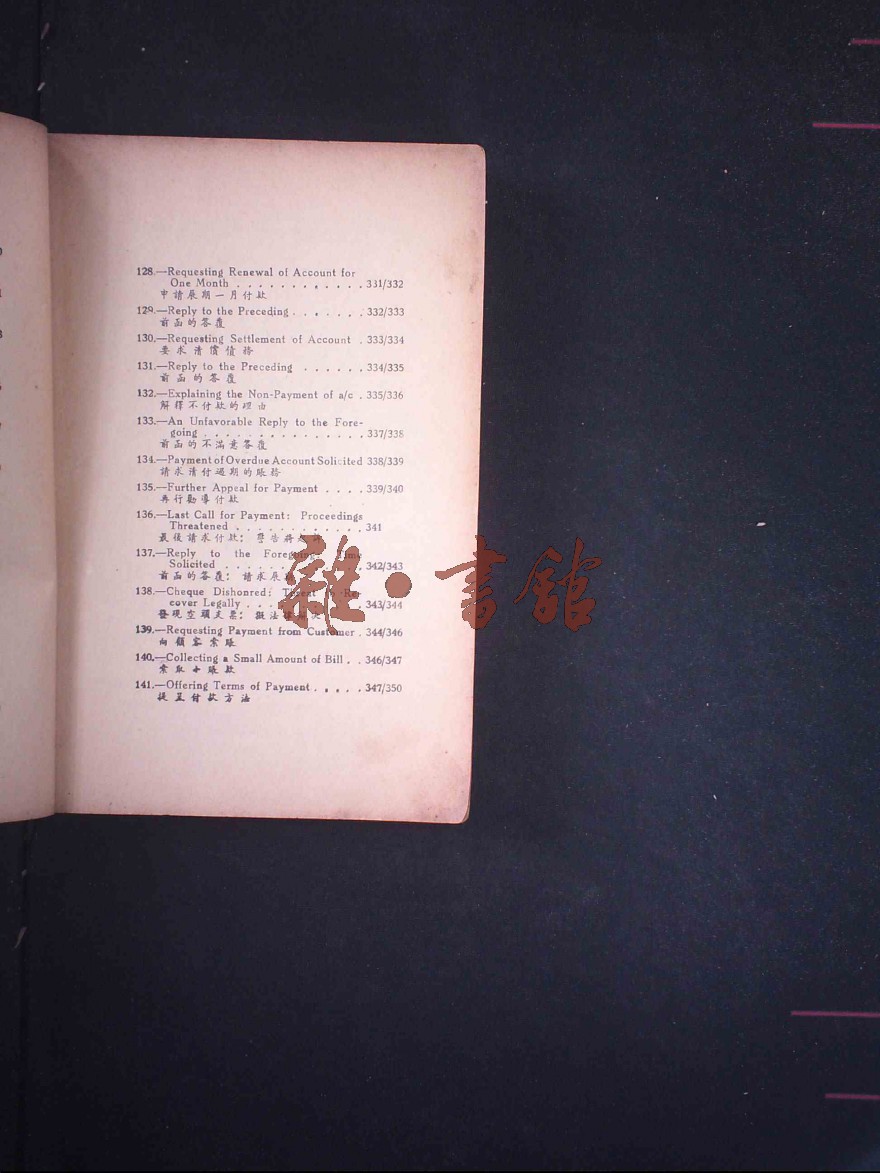 128.—Requesting Renewal of Account for
One Month . . . . . . . . . . . . 331/332
申請展期一月付款
129.—Reply to the Preceding . . . . . . . 332/333
前函的答覆
130.—Requesting Settlement of Account . 333/334
要求清償債務
131.—Reply to the Preceding . . . . . . 334/335
前函的答覆
132.—Explaining the Non-Payment of a/c . 335/336
解釋不付款的理由
133.—An Unfavorable Reply to the Fore-
going . . . . . . . . . . . . . . . 337/338
前函的不滿意答覆
134.—Payment of Overdue Account Solicited 338/339
請求清付過期的賬務
135.—Further Appeal for Payment . . . . 339/340
再行勸導付款
136.—Last Call for Payment: Proceedings
Threatened . . . . . . . . . . . . 341
最後請求付款: 警告將
137.—Reply to the Foregoing: Time
Solicited . . . . 342/343
前函的答覆: 請求展
138.—Cheque Dishonred: Threat to Re-
cover Legally . . . 343/344
發現空頭支票: 擬法
139.—Requesting Payment from Customer . 344/346
向顧客索賬
140.—Collecting a Small Amount of Bill . . 346/347
索取小賬款
141.—Offering Terms of Payment . . . . . 347/350
提呈付款方法
雜·書館